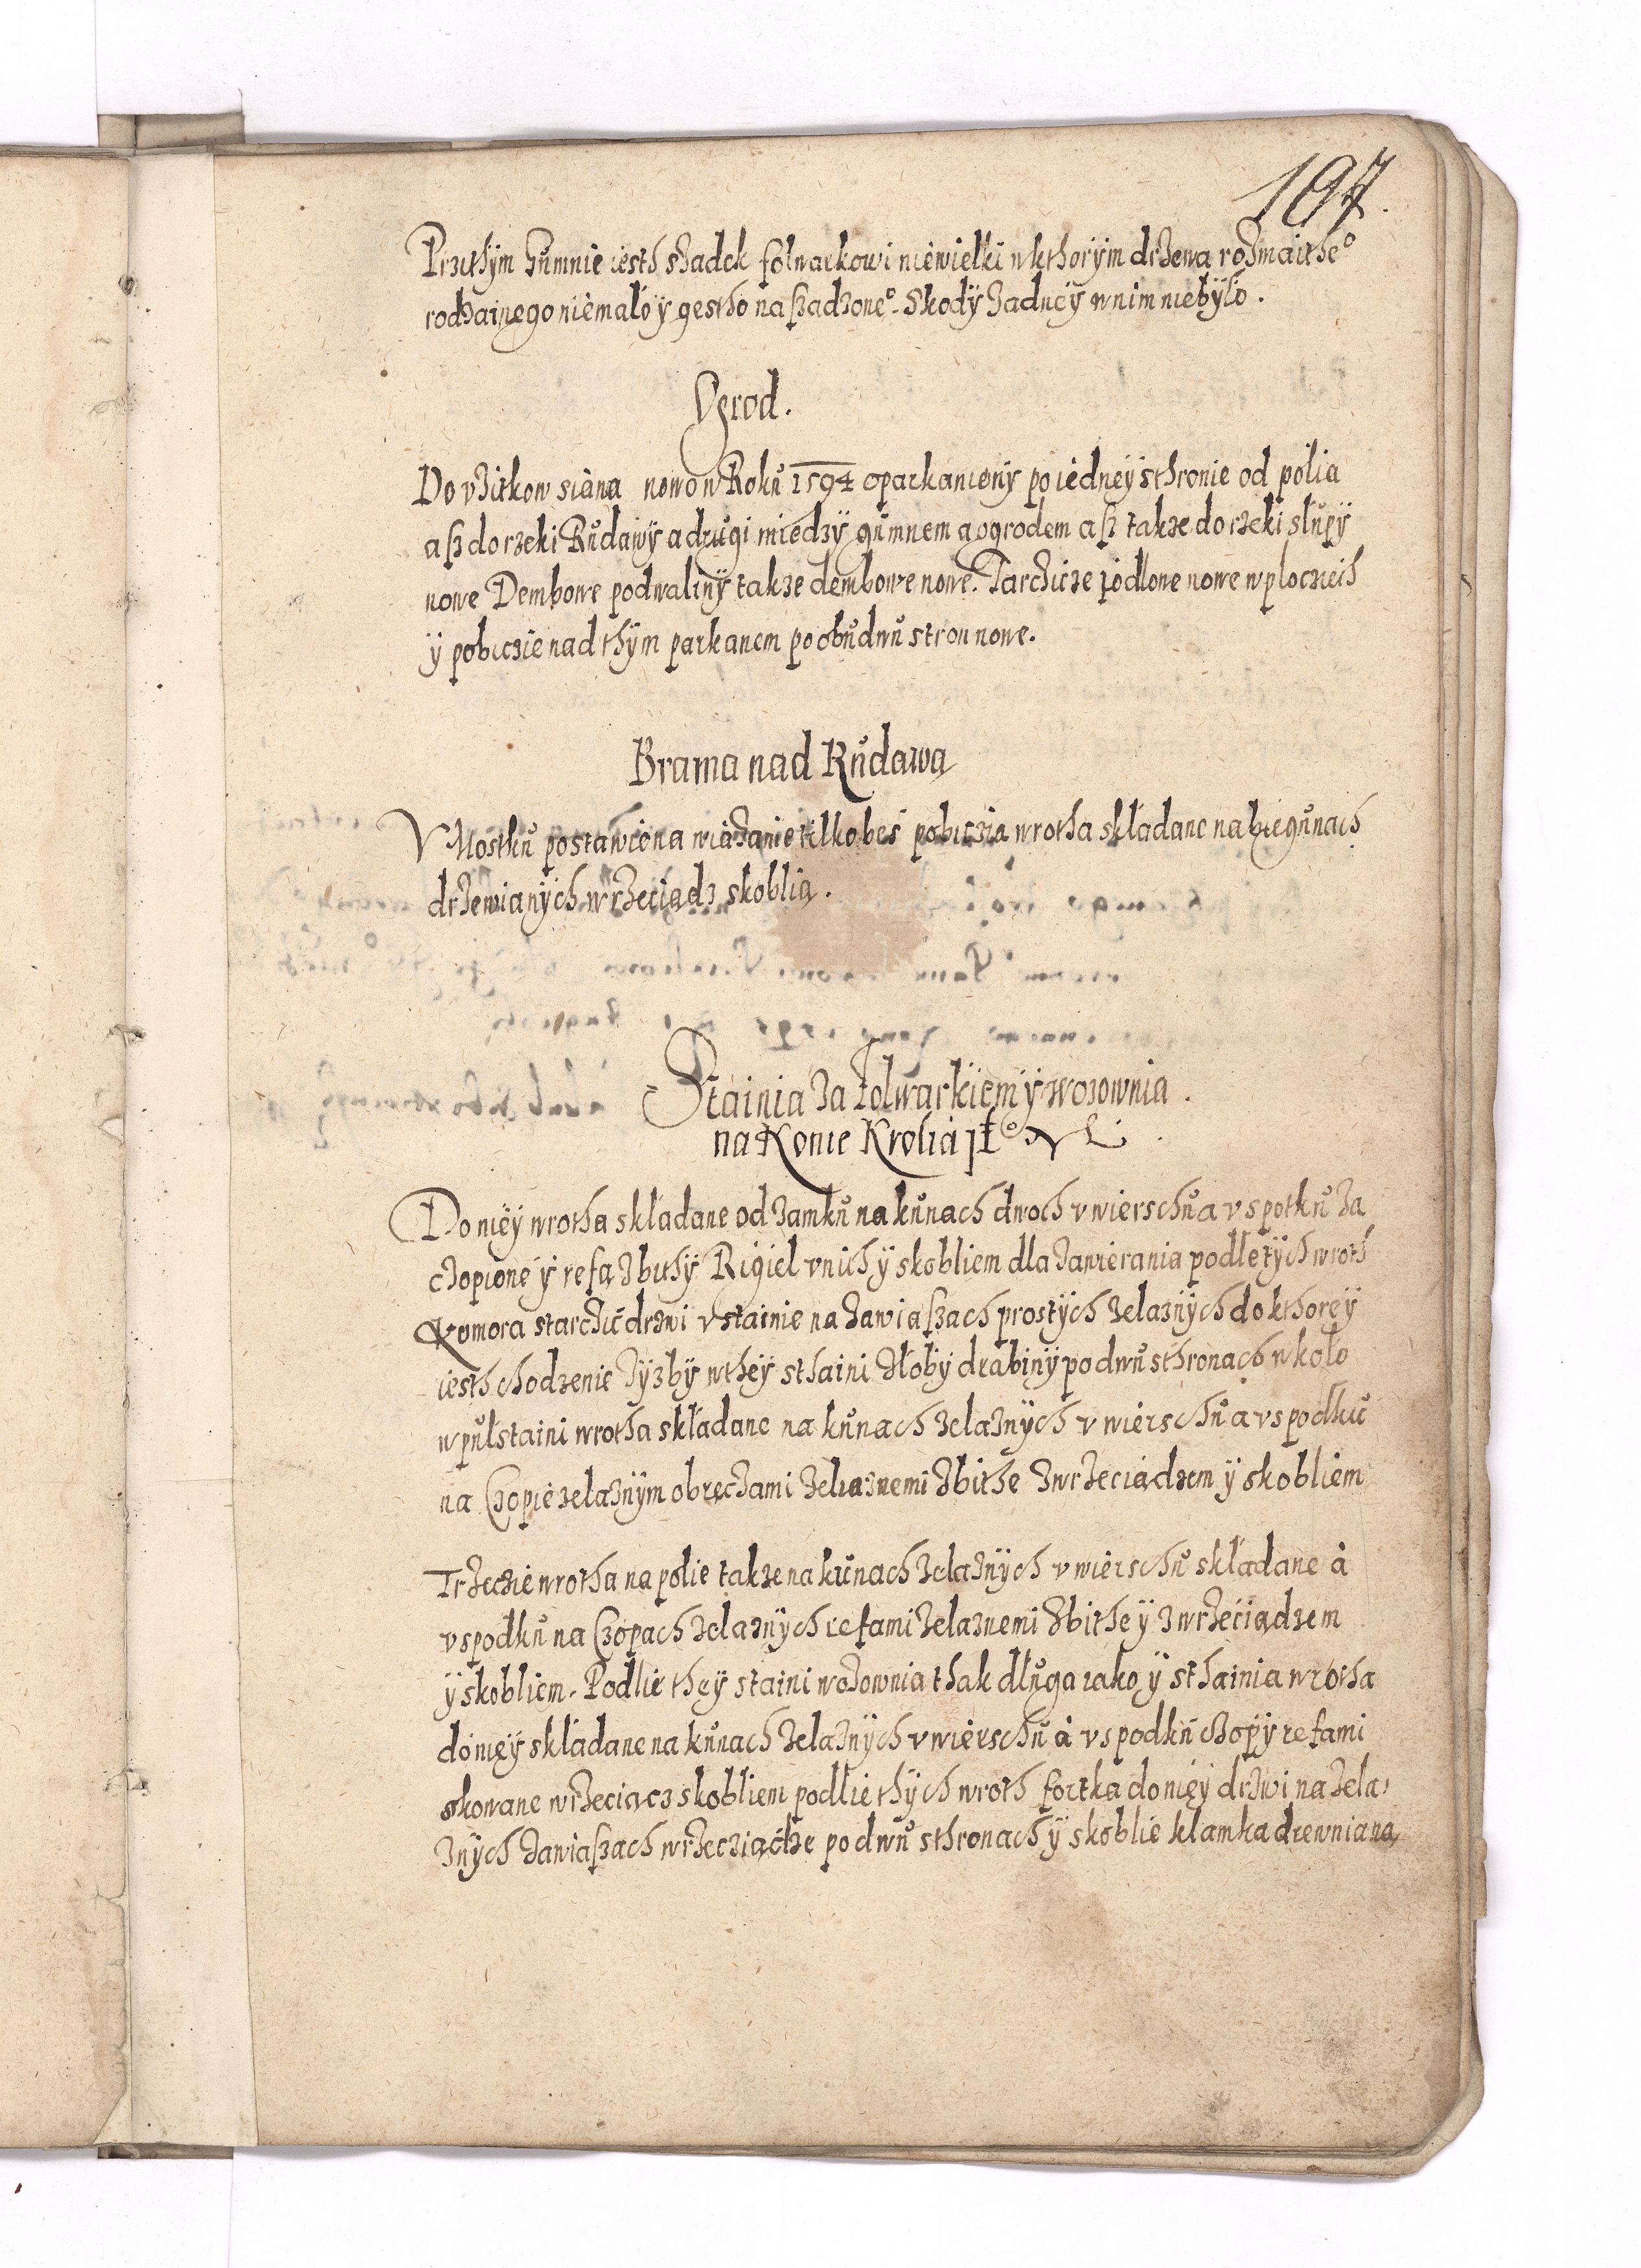 197.
Przithÿm Gůmnie iesth Szadek folwarkowi niewielki w kthorÿm drzewa rozmaitheº
rodzainego niemało ÿ gestho naszadzoneº. Skodÿ zadneÿ w nim niebÿło.
Ogrod.
Do vzitkow siana nowo w Roků 1594 oparkanionÿ po iedneÿ sthronie od polia
asz do rzeki Růdawÿ a drůgi miedzÿ gůmnem a ogrodem asz takze do rzeki słupÿ
nowe Dembowe podwalinÿ takze dembowe nowe. Tarczicze jodlowe nowe w płoczich
ÿ pobiczie nad thÿm parkanem po obůdwů stron nowe.
Brama nad Růdawą
V Mosthů postawiona wiązanie tilko bes pobiczia wrotha składane na biegůnach
drzewianÿch wrzeciądz skoblią.
Stainia za folwarkiem ÿ wozownia.
na Konie Krolia JEº
Do nieÿ wrotha składane od zamků na kůnach dwoch v wierschů a v spotků za
czopione ÿ refą zbithÿ Rigiel v nich ÿ skobliem dla zawierania podle tÿch wroth
Komora s tarczic drzwi v stainie na zawiaszach prostÿch zelaznÿch do kthoreÿ
iesth chodzenie Jzbÿ w theÿ sthaini złobÿ drabinÿ po dwů sthronach w koło
w půl staini wrotha składane na kůnach zelaznÿch v wierschů a v spodků
na Czopie zelaznÿm obręczami zeliaznemi zbithe z wrzeciądzem ÿ skobliem
Trzeczie wrotha na polie takze na kůnach zelaznÿch v wierschů składane à
v spodků na Czopach zelaznÿch refami zelaznemi zbithe ÿ z wrzeciądzem
ÿ skobliem. Podlie theÿ staini wozownia thak długa iako ÿ sthainia wrotha
do nieÿ składane na kůnach zelaznÿch v wierschů à v spodků czopÿ refami
okowane wrzeciącz skobliem podlie thÿch wroth fortka do nieÿ drzwi na zela,
znÿch zawiaszach wrzecziącze po dwů sthronach ÿ skoblie klamka drewniana